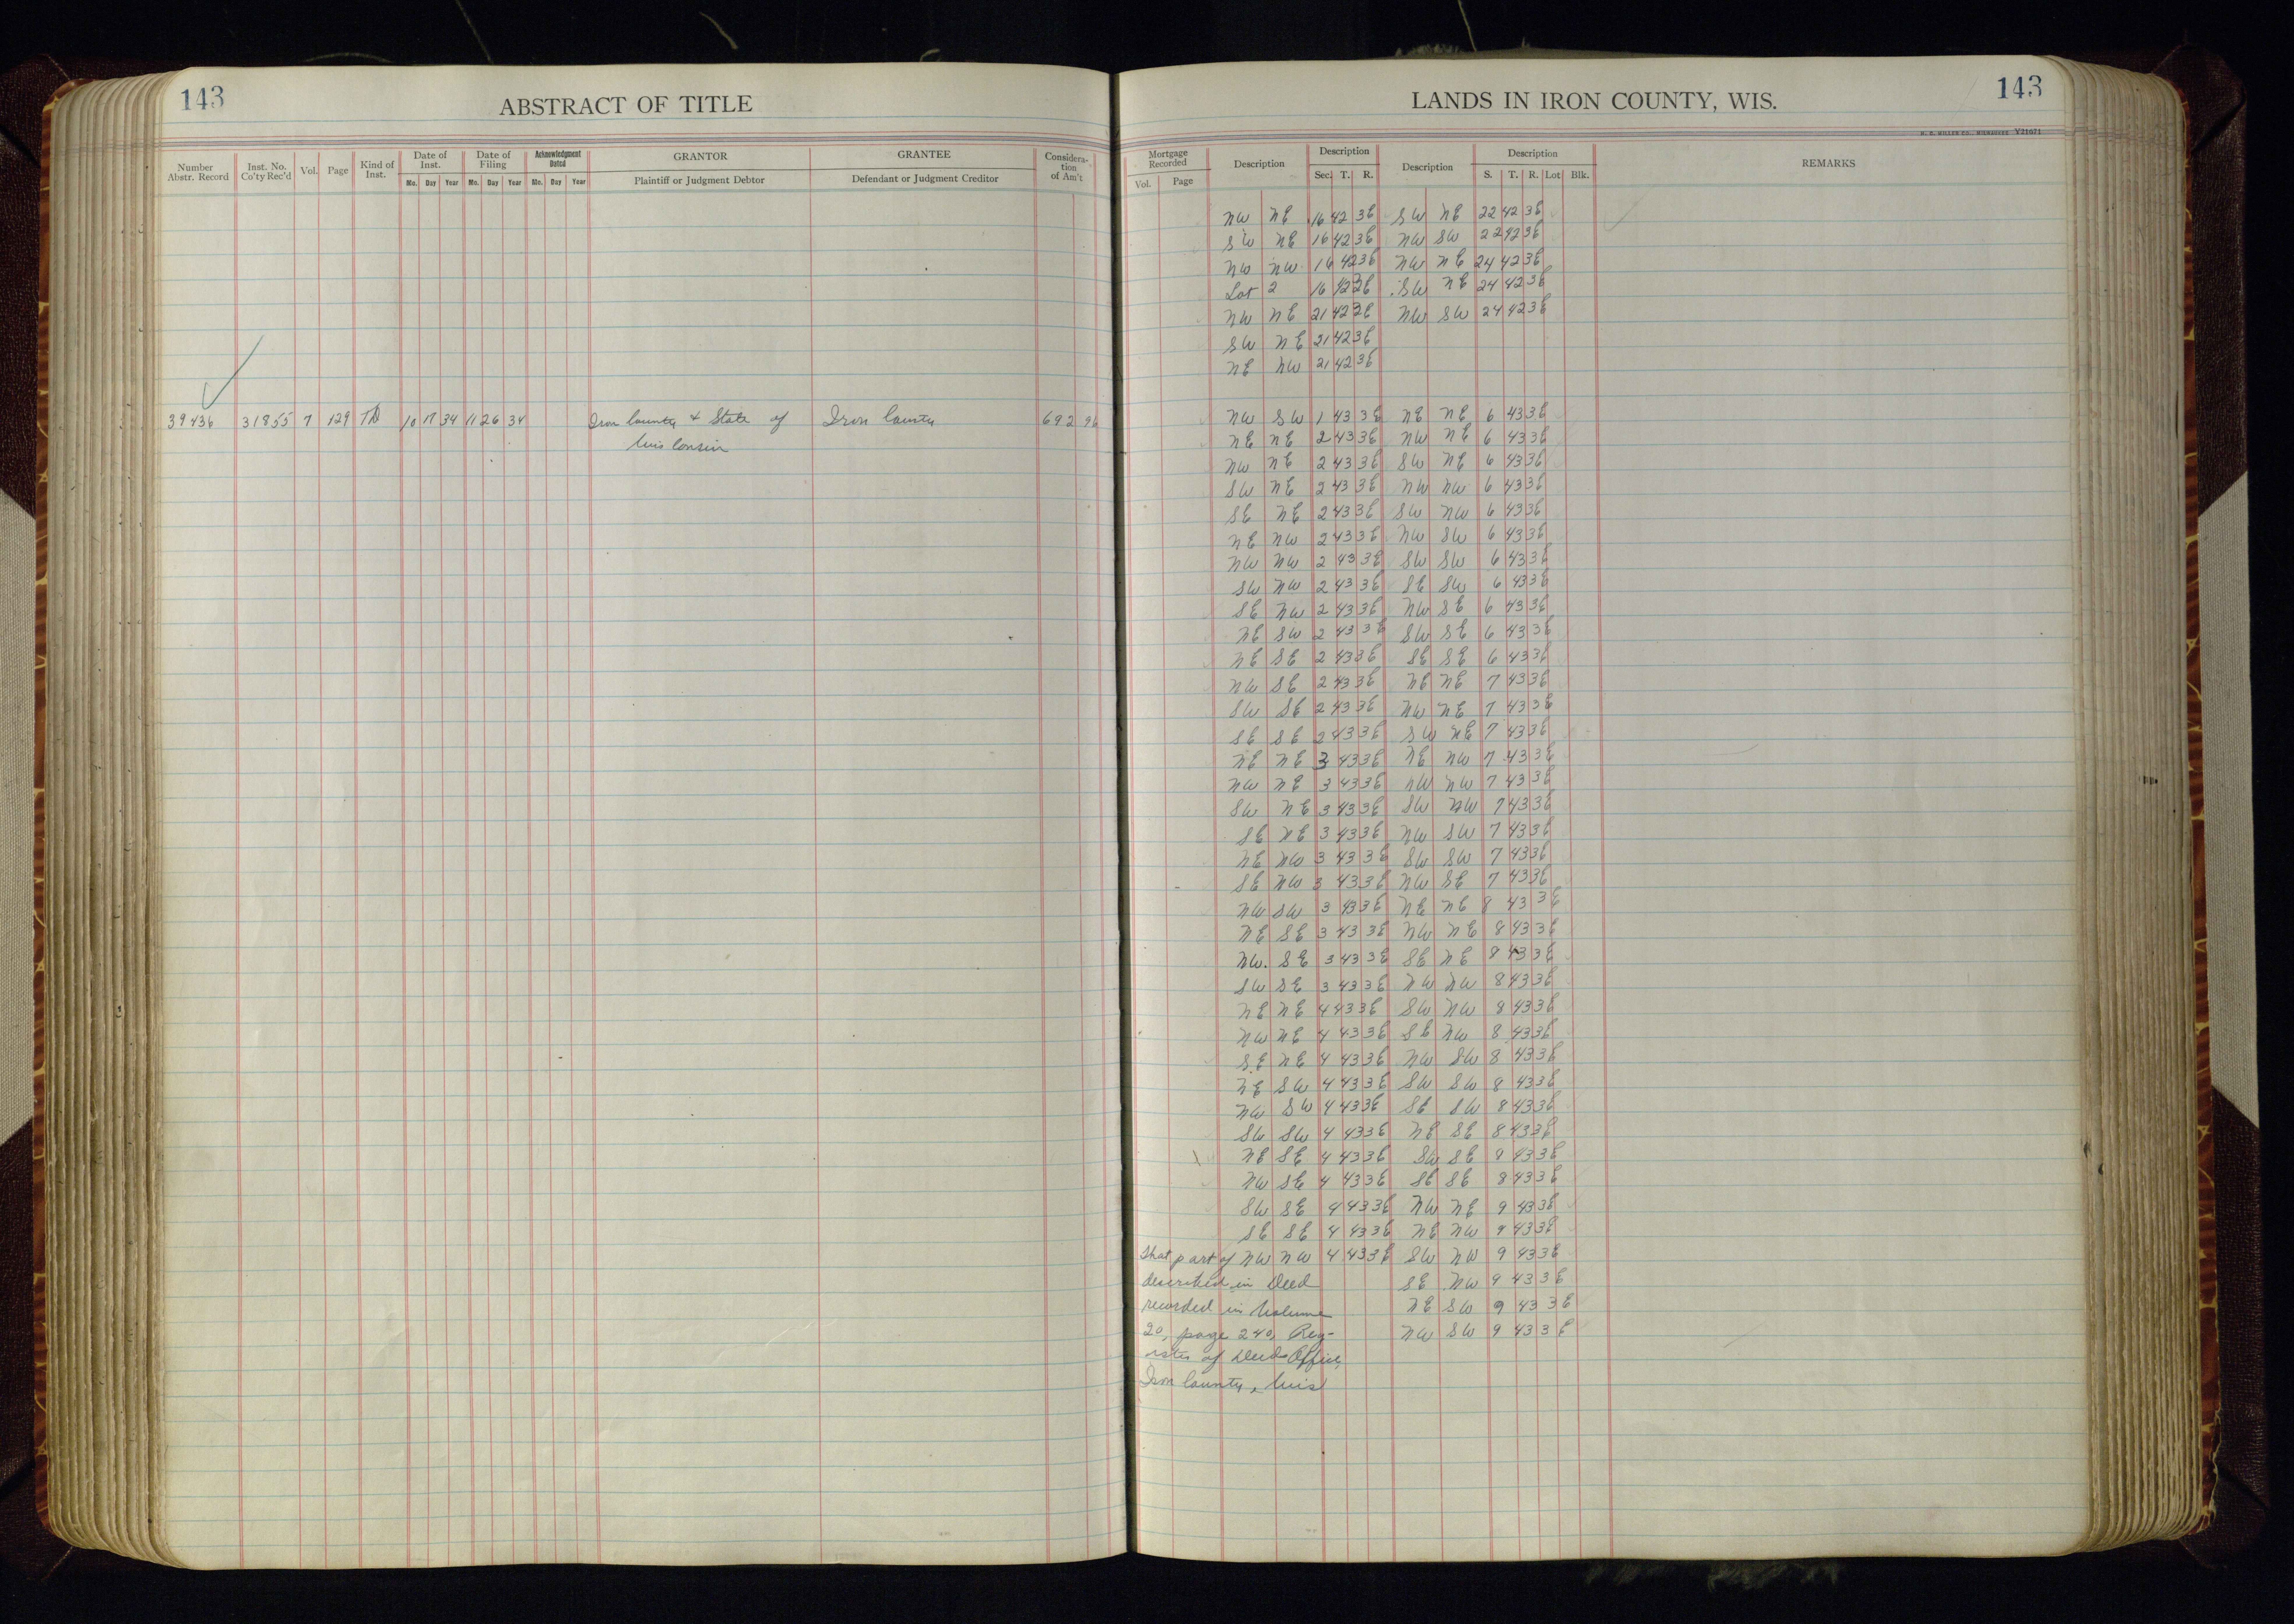 143
ABSTRACT OF TITLE
Number Abstr. Record
Inst. No. Co'ty Rec'd
Vol.
Page
Kind of Inst.
Date of Inst.
Mo. Day Year
Date of Filing
Mo. Day Year
Acknowledgment Dated
Mo. Day Year
GRANTOR
Plaintiff or Judgment Debtor
GRANTEE
Defendant or Judgment Creditor
Considera-
tion
of Am't
39436 31855 7 129 TD 10 17 34 11 26 34 Iron County & State of Iron County 692 96
Wisconsin
LANDS IN IRON COUNTY, WIS.
143
H. C. MILLER CO., MILWAUKEE Y21671
Mortgage Recorded
Vol. Page
Description
Description
Sec. T. R.
Description
Description
S. T. R. Lot Blk.
REMARKS
NW NE 16 42 3E SW NE 22 42 3E
SW NE 16 42 3E NW SW 22 42 3E
NW NW 16 42 3E NW NE 24 42 3E
Lot 2 16 42 3E SW NE 24 42 3E
NW NE 21 42 3E NW SW 24 42 3E
SW NE 21 42 3E
NE NW 21 42 3E
NW SW 1 43 3E NE NE 6 43 3E
NE NE 2 43 3E NW NE 6 43 3E
NW NE 2 43 3E SW NE 6 43 3E
SW NE 2 43 3E NW NW 6 43 3E
SE NE 2 43 3E SW NW 6 43 3E
NE NW 2 43 3E NW SW 6 43 3E
NW NW 2 43 3E SW SW 6 43 3E
SW NW 2 43 3E SE SW 6 43 3E
SE NW 2 43 3E NW SE 6 43 3E
NE SW 2 43 3E SW SE 6 43 3E
NE SE 2 43 3E SE SE 6 43 3E
NW SE 2 43 3E NE NE 7 43 3E
SW SE 2 43 3E NW NE 7 43 3E
SE SE 2 43 3E SW NE 7 43 3E
NE NE 3 43 3E NE NW 7 43 3E
NW NE 3 43 3E NW NW 7 43 3E
SW NE 3 43 3E SW NW 7 43 3E
SE NE 3 43 3E NW SW 7 43 3E
NE NW 3 43 3E SW SW 7 43 3E
SE NW 3 43 3E NW SE 7 43 3E
NW SW 3 43 3E NE NE 8 43 3E
NE SE 3 43 3E NW NE 8 43 3E
NW. SE 3 43 3E SE NE 8 43 3E
SW SE 3 43 3E NW NW 8 43 3E
NE NE 4 43 3E SW NW 8 43 3E
NW NE 4 43 3E SE NW 8 43 3E
SE NE 4 43 3E NW SW 8 43 3E
NE SW 4 43 3E SW SW 8 43 3E
NW SW 4 43 3E SE SW 8 43 3E
SW SW 4 43 3E NE SE 8 43 3E
NE SE 4 43 3E SW SE 8 43 3E
NW SE 4 43 3E SE SE 8 43 3E
SW SE 4 43 3E NW NE 9 43 3E
SE SE 4 43 3E NE NW 9 43 3E
That part of NW NW 4 43 3E SW NW 9 43 3E
described in Deed SE NW 9 43 3E
recorded in Volume NE SW 9 43 3E
20, page 240, Reg- NW SW 9 43 3E
ister of Deeds Office,
Iron County, Wis